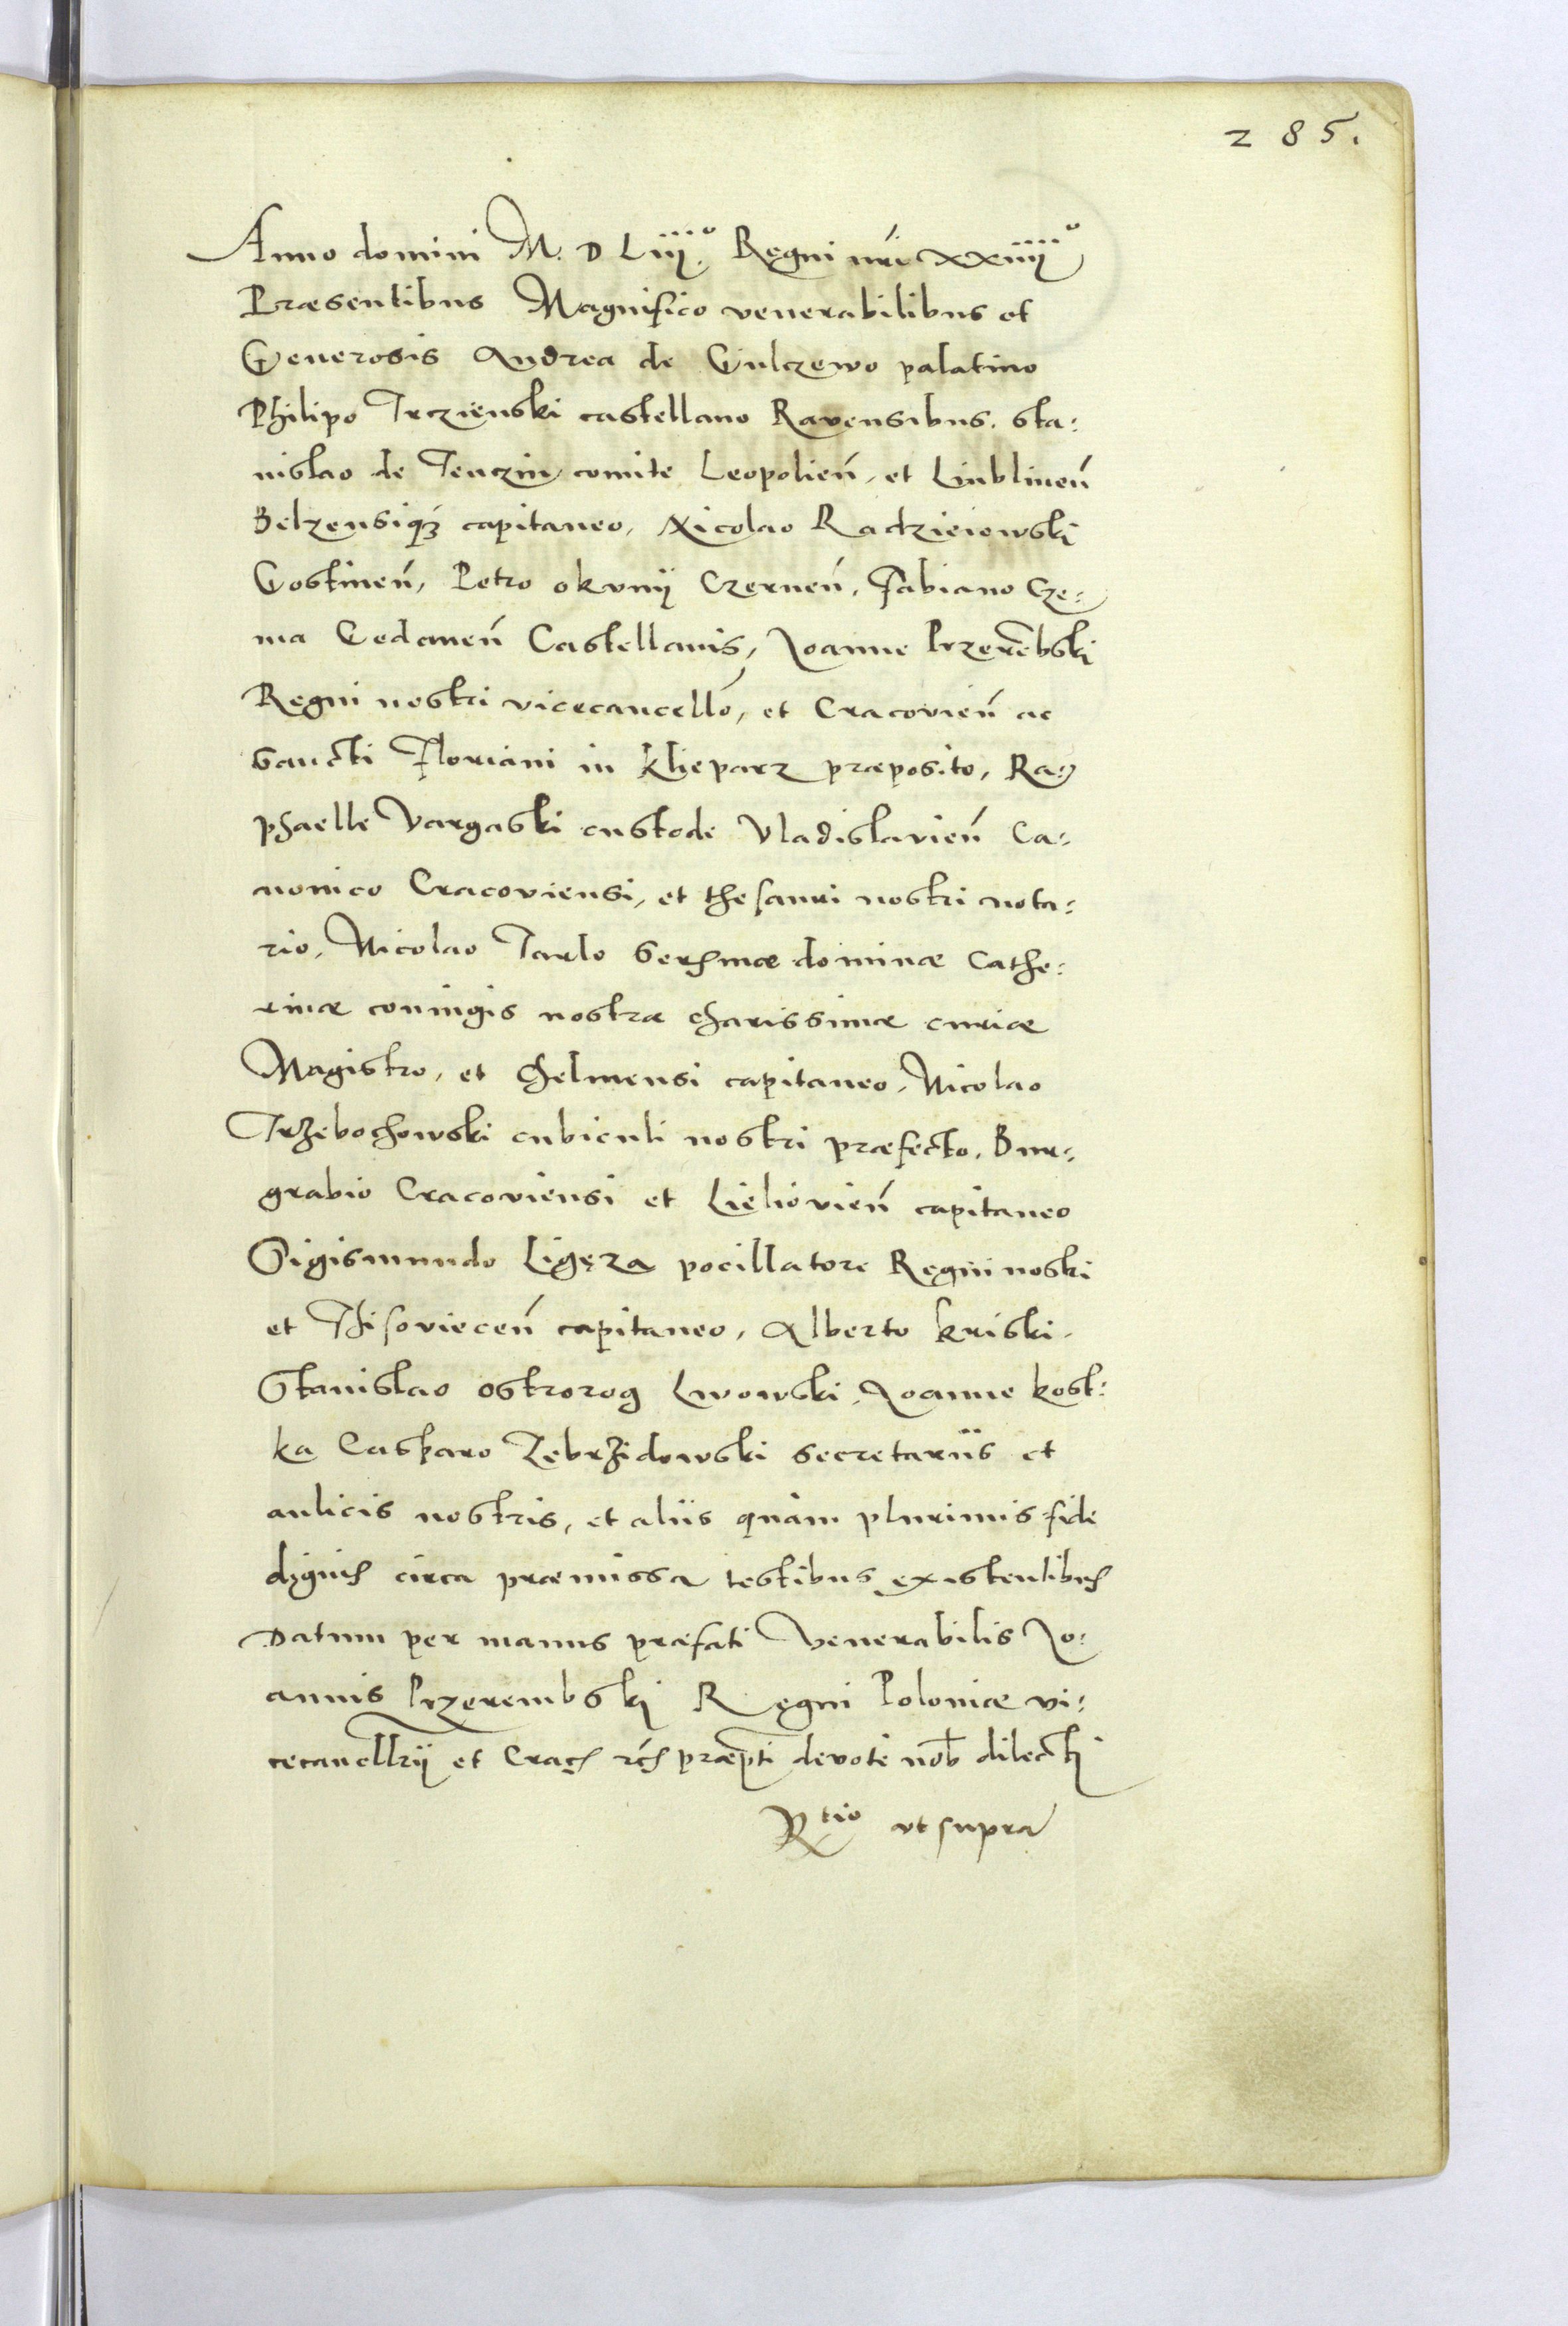 285.
Anno domini M. D Liij.º Regni nri xxiiijº
Praesentibus Magnifico venerabilibus et
Generosis Andrea de Gulczewo palatino
Philipo Trczienski castellano Ravensibus. Sta:
nislao de Tenczin comite Leopolien̄, et Liublinen̄
Belzensiqꝫ capitaneo, Nicolao Radzieiowski
Gostinen̄, Petro okvnij Czernen̄, Fabiano Cze:
ma Gedanen̄ Castellanis, Joanne Przerēbski
Regni nostri vicecancell̄o, et Cracovien̄ ac
Sancti Floriani in Klieparz praeposito, Ra:
phaelle Vargaski custode Vladislavien̄ Ca:
nonico Cracoviensi, et thesauri nostri nota:
rio, Nicolao Tarlo Sermae dominae Cathe:
rinae coniugis nostrae charissimae curiae
Magistro, et Chelmensi capitaneo, Nicolao
Trzebochowski cubiculi nostri praefecto, Bur:
grabio Cracoviensi et Lielovien̄ capitaneo
Sigismundo Ligęza pocillatore Regni nostri
et Thisoviecen̄ capitaneo, Alberto Kriski.
Stanislao Ostrorog Lwowski, Joanne Kost:
ka Casparo Zebrzidowski secretariis et
aulicis nostris, et aliis quàm plurimis fide
dignis circa praemissa testibus existentibus
Datum per manus praefati Venerabilis Jo:
annis Przerembski Regni Poloniae vi:
cecancellrij et Crac̄ praepti devote nob̄ dilecti
Rtio ut supra